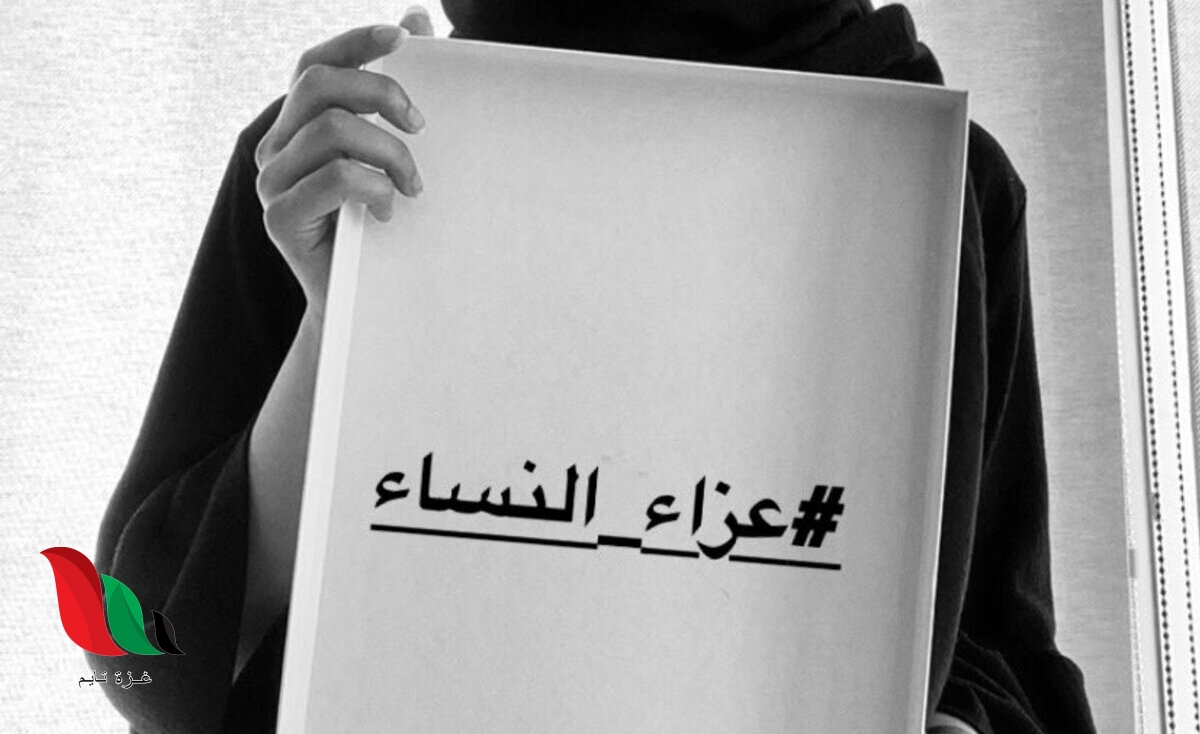 #عزاء_النساء
غزة تايم